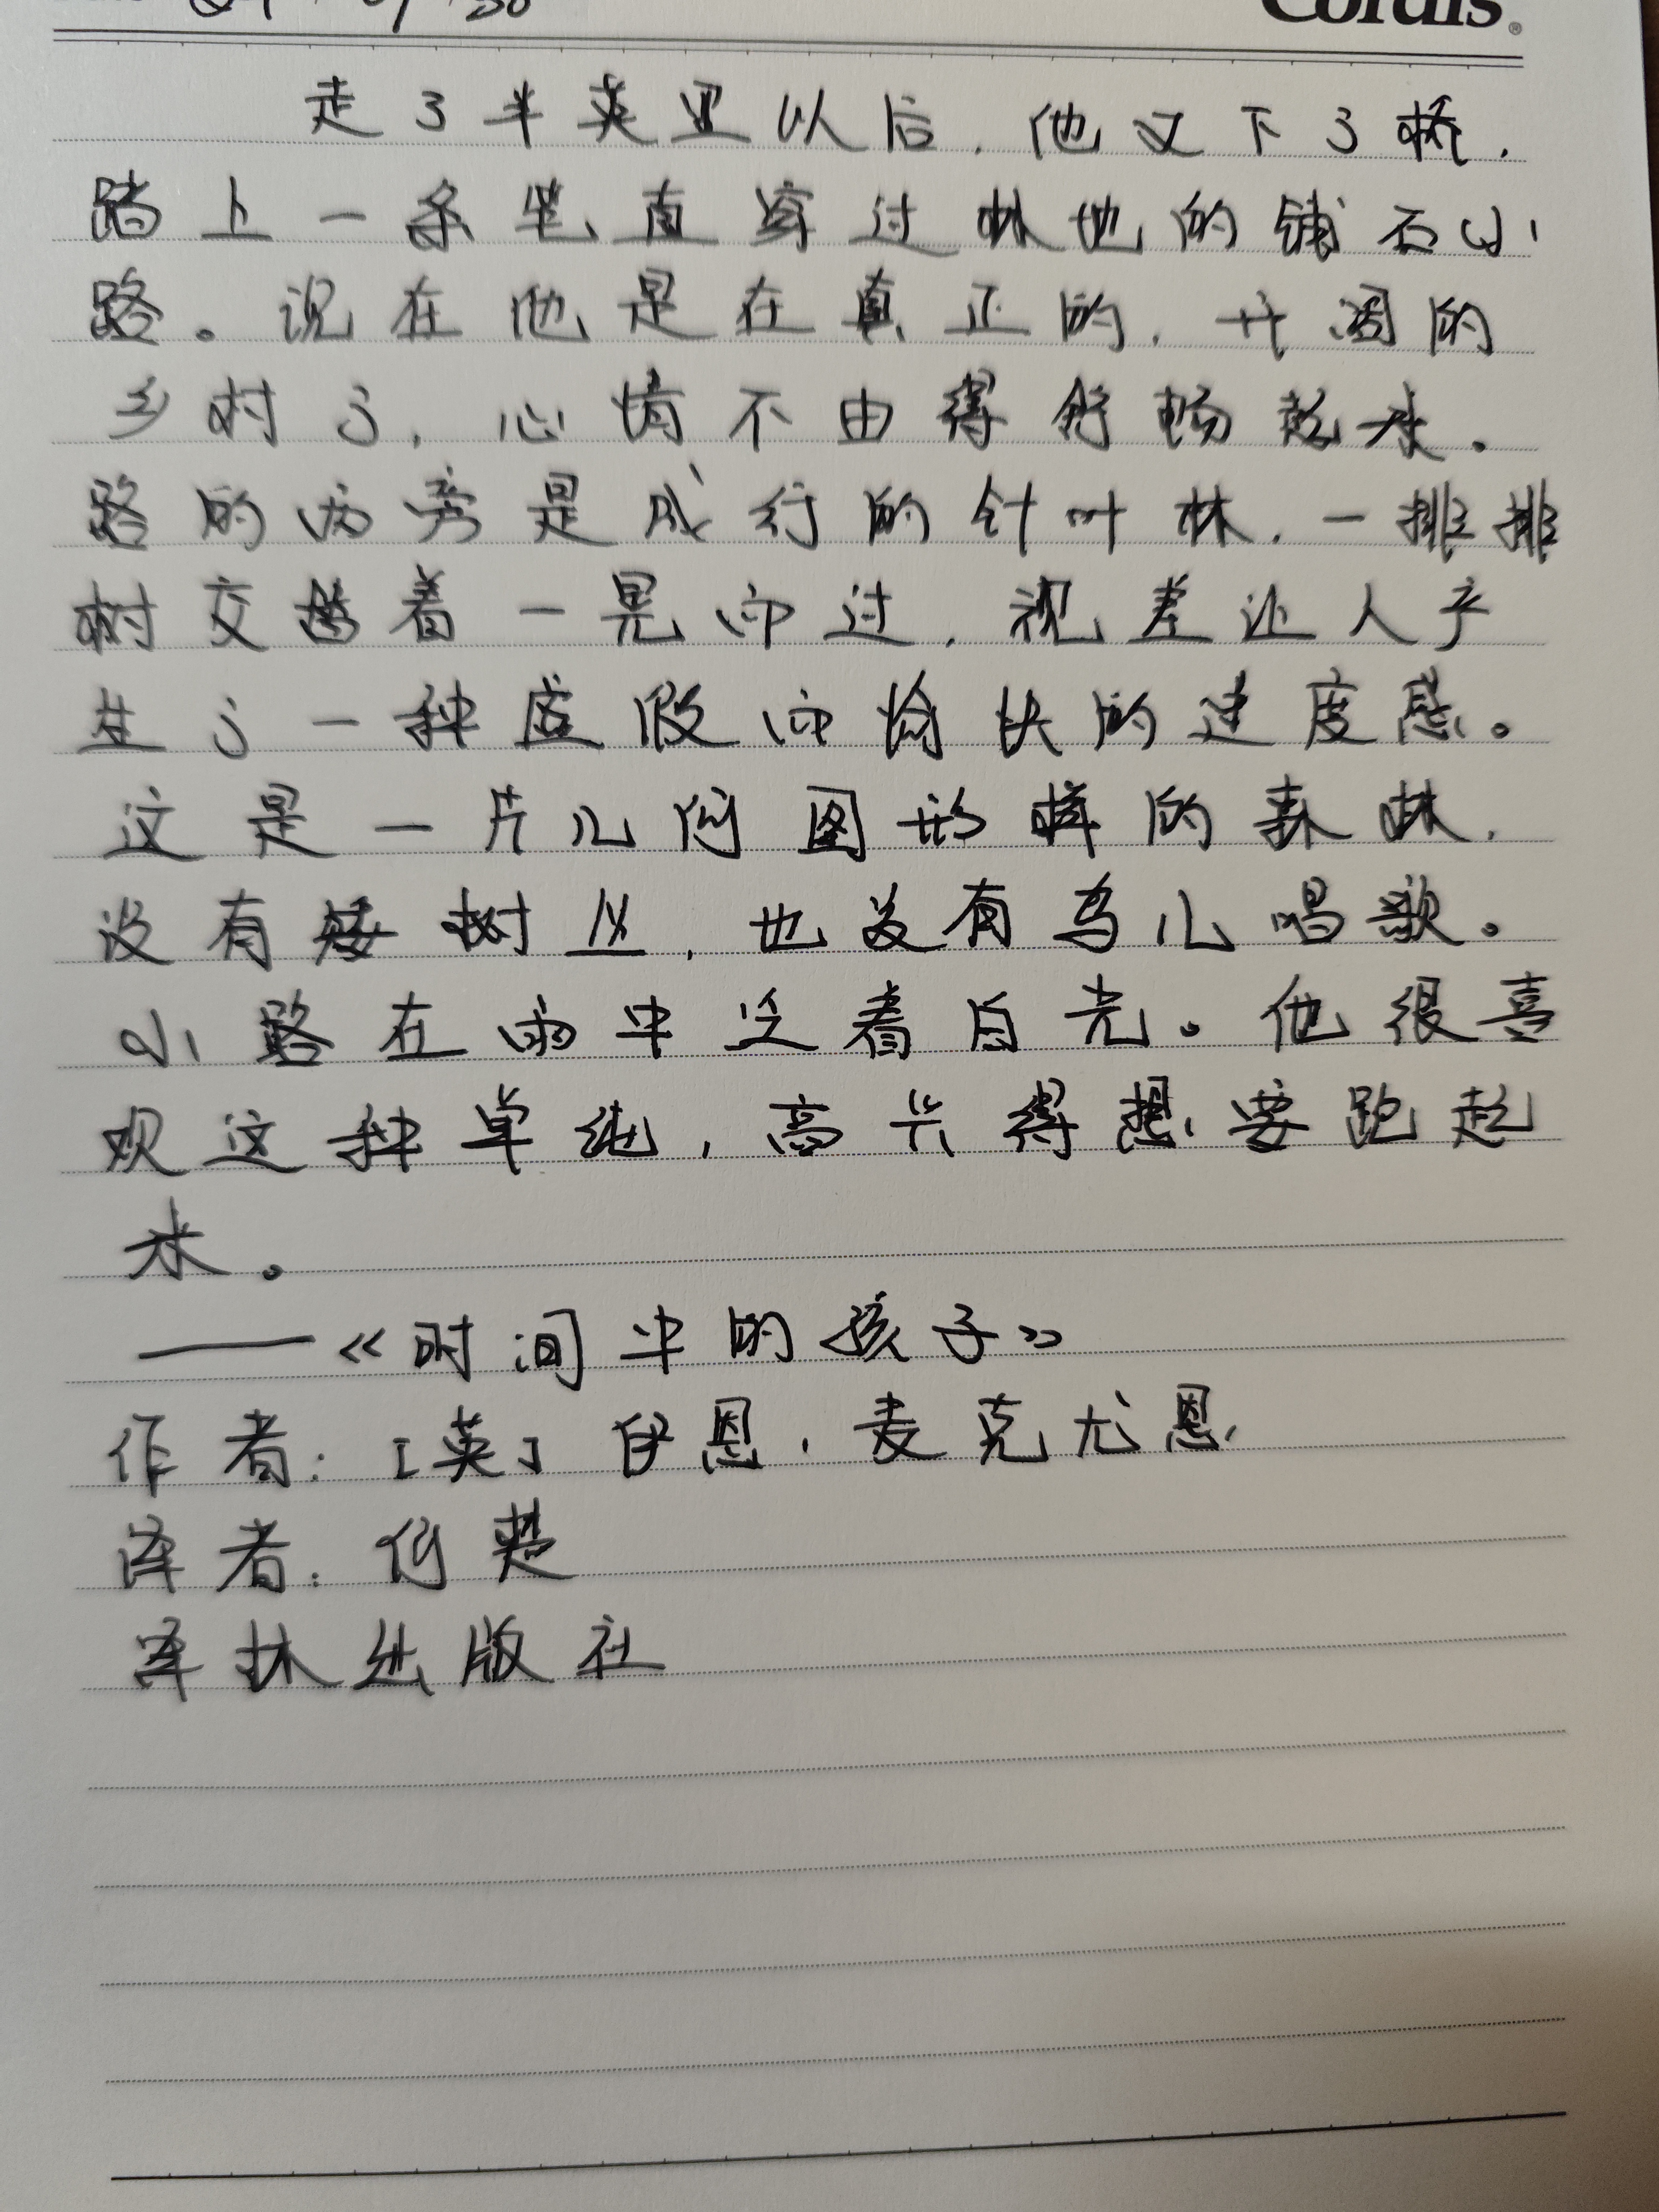 Cordis
走了半英里以后，他又下了桥，
踏上一条笔直穿过林地的铺石小
路。现在他是在真正的，开阔的
乡村了，心情不由得舒畅起来。
路的两旁是成行的针叶林，一排排
树交错着一晃而过，视差让人产
生了一种虚假而愉快的速度感。
这是一片几何图形样的森林，
没有矮树丛，也没有鸟儿唱歌。
小路在雨中泛着白光。他很喜
欢这种单纯，高兴得想要跑起
来。
——《时间中的孩子》
作者：[英]伊恩·麦克尤恩
译者：何楚
译林出版社